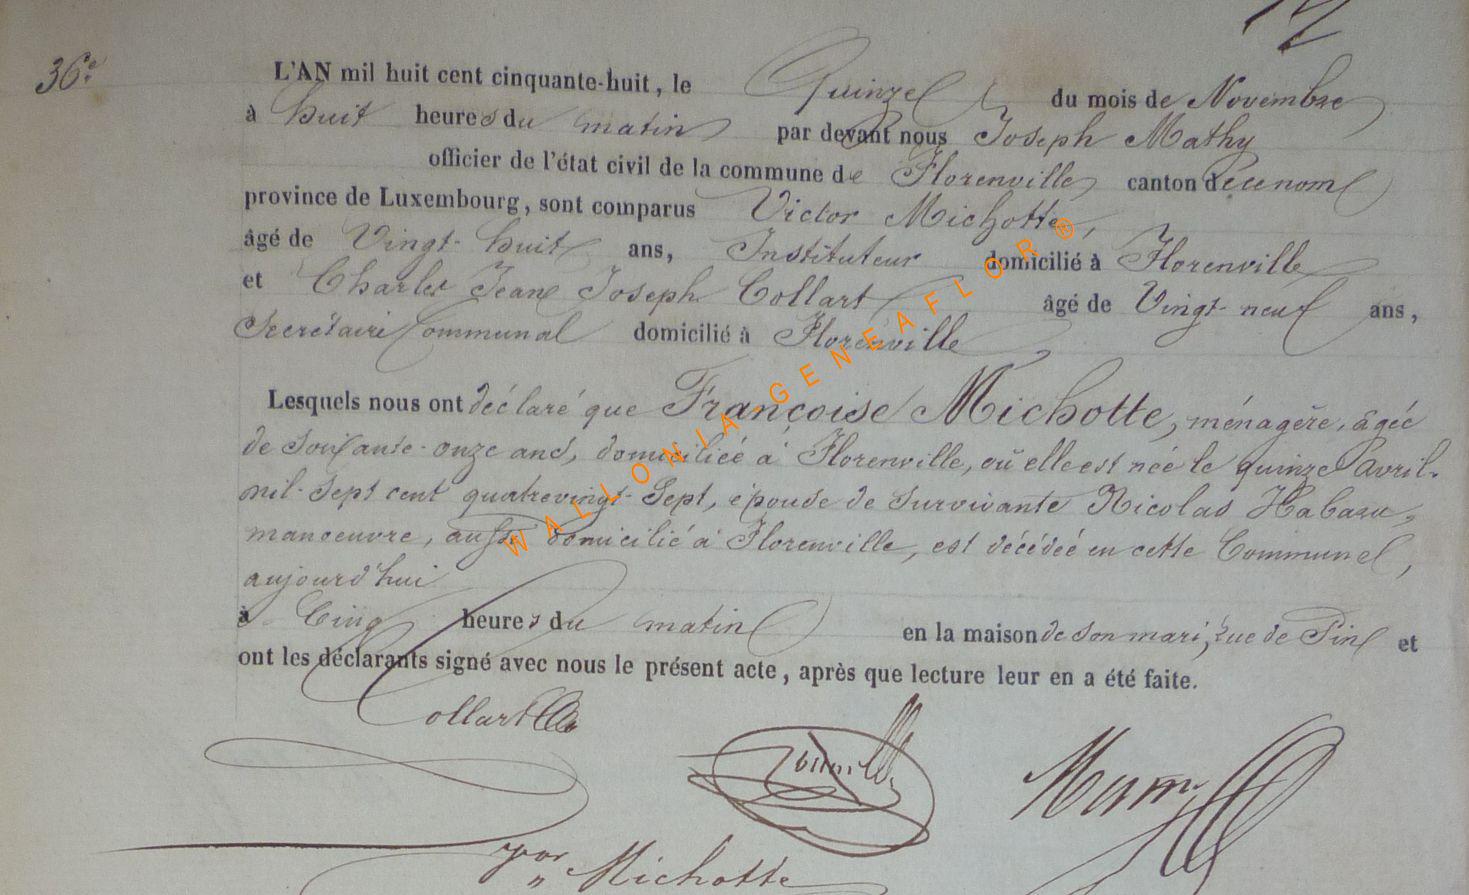 12
36e
L'AN mil huit cent cinquante-huit, le Quinze du mois de Novembre
à huit heures du matin par devant nous Joseph Mathy
officier de l'état civil de la commune de Florenville, canton de ce nom
province de Luxembourg, sont comparus Victor Michotte,
âgé de Vingt-huit ans, Instituteur domicilié à Florenville
et Charles Jean Joseph Collart âgé de Vingt-neuf ans,
Secrétaire Communal domicilié à Florenville
Lesquels nous ont déclaré que Françoise Michotte, ménagère, agée
de soixante-onze ans, domiciliée à Florenville, où elle est née le quinze avril
mil-sept cent quatrevingt-sept, épouse de survivante Nicolas Habaru,
manoeuvre, aussi domicilié à Florenville, est décédée en cette Commune,
aujourd'hui
à Cinq heures du matin en la maison de son mari, rue de Pin et
ont les déclarants signé avec nous le présent acte, après que lecture leur en a été faite.
Collart
Michotte
WALLONIA-GENEAFLOR®